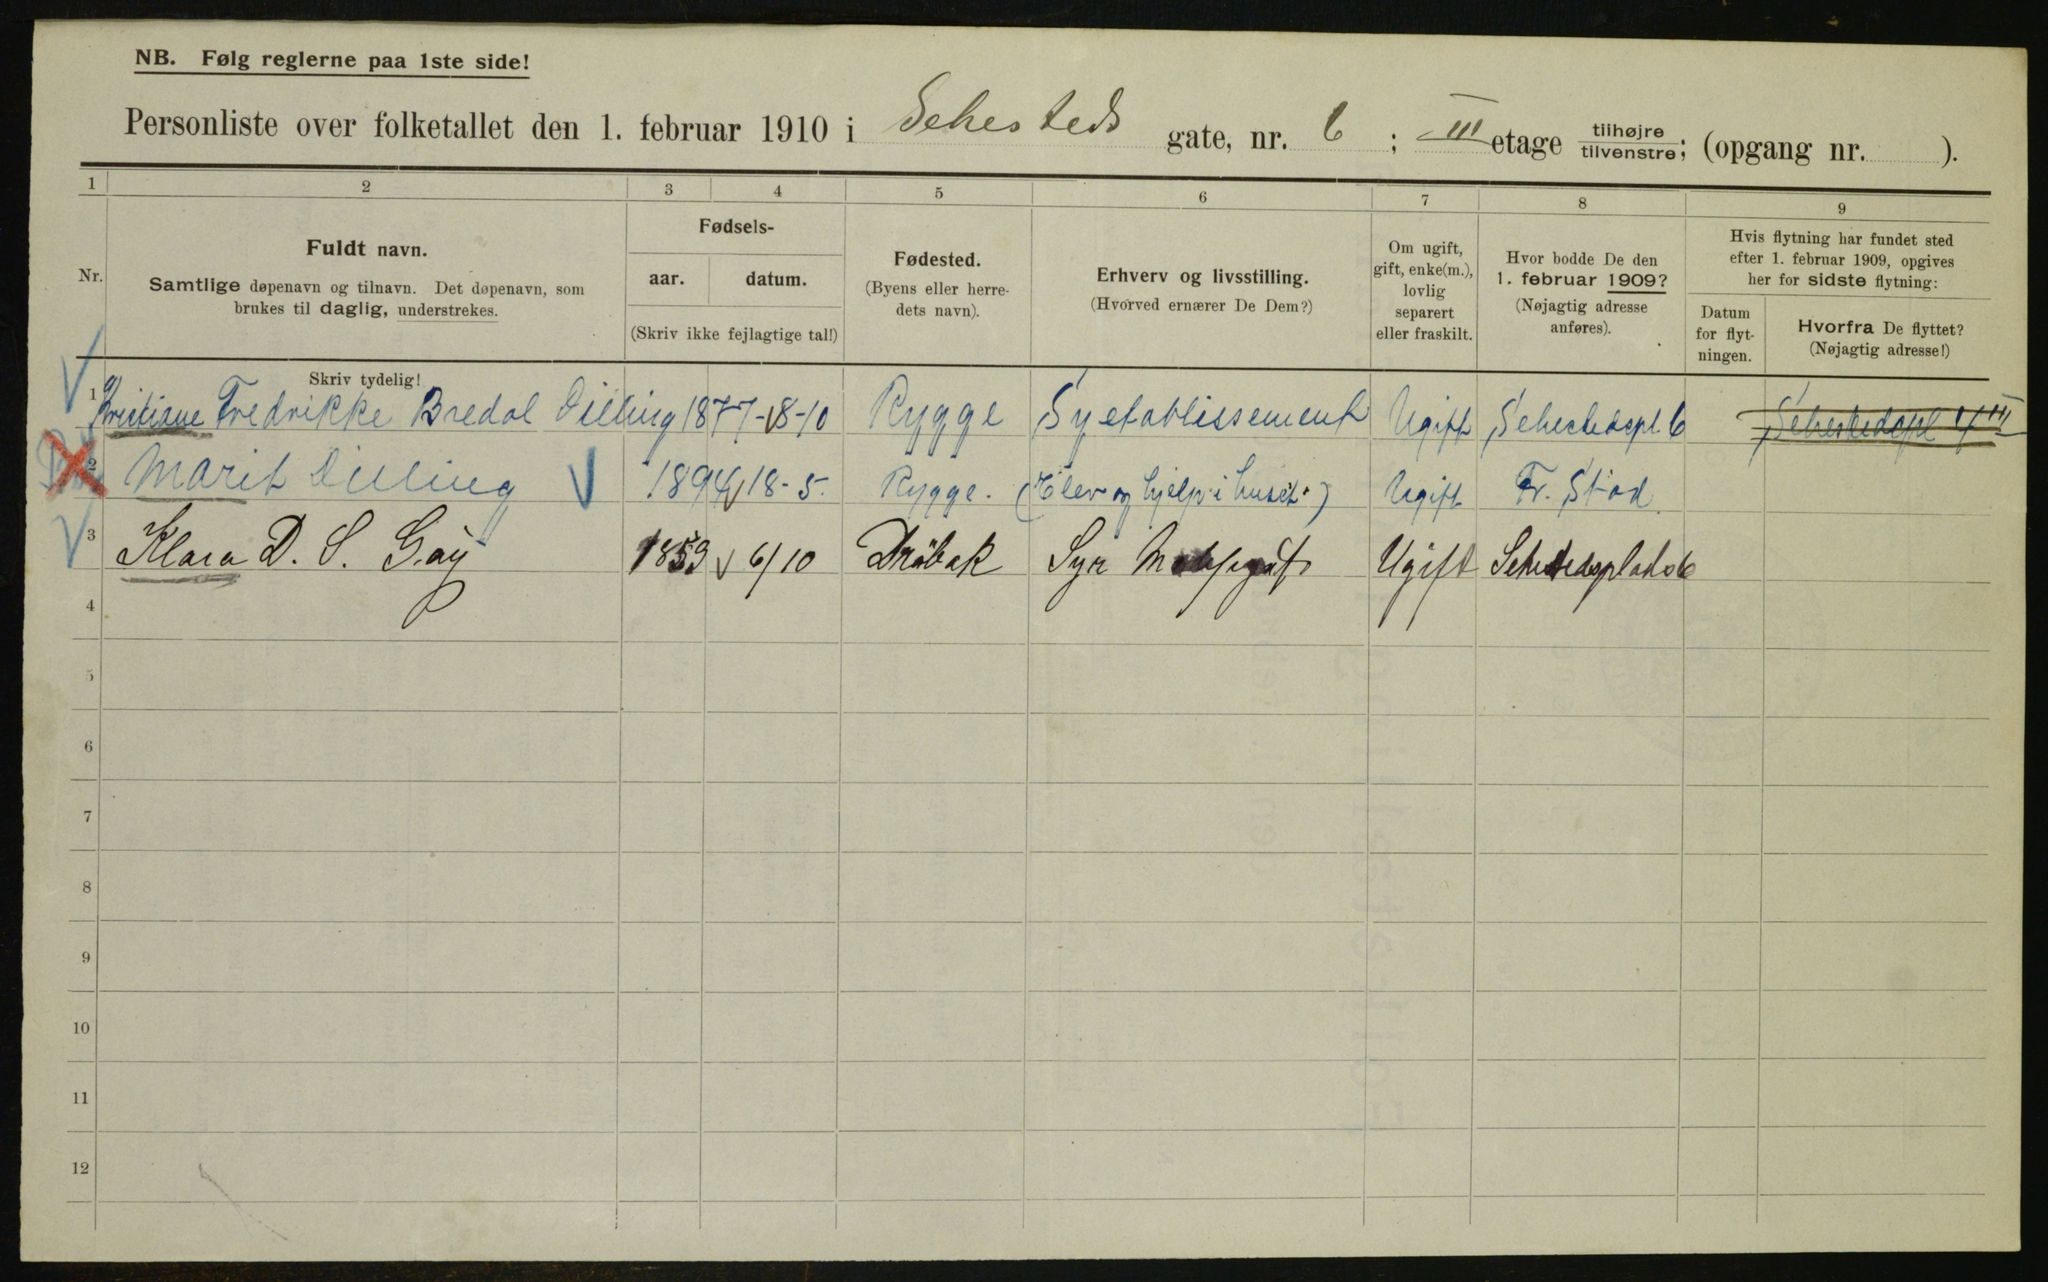 NB. Følg reglerne paa 1ste side!
Personliste over folketallet den 1. februar 1910 i Sehesteds gate, nr. 6 ; III etage tilhøjre tilvenstre; (opgang nr. ).
1 2 3 4 5 6 7 8 9
Nr.
Fuldt navn.
Samtlige døpenavn og tilnavn. Det døpenavn, som
brukes til daglig, understrekes.
Skriv tydelig!
Fødsels-
aar. datum.
(Skriv ikke fejlagtige tal!)
Fødested.
(Byens eller herre-
dets navn).
Erhverv og livsstilling.
(Hvorved ernærer De Dem?)
Om ugift,
gift, enke(m.),
lovlig
separert
eller fraskilt.
Hvor bodde De den
1. februar 1909?
(Nøjagtig adresse
anføres).
Hvis flytning har fundet sted
efter 1. februar 1909, opgives
her for sidste flytning:
Datum
for flyt-
ningen.
Hvorfra De flyttet?
(Nøjagtig adresse!)
1 Kristiane Fredrikke Bredal Dilling 1877 8-10 Rygge Syetablissement Ugift Sehestedspl. 6 Sehestedspl 4 III
2 Marit Dilling 1894 18-5. Rygge. (Elev og hjelp i huset.) Ugift Fr. Stad.
3 Klara D. S. Gay 1859 6/10 Drøbak Syr Ugift Sehestedsplads 6
4
5
6
7
8
9
10
11
12